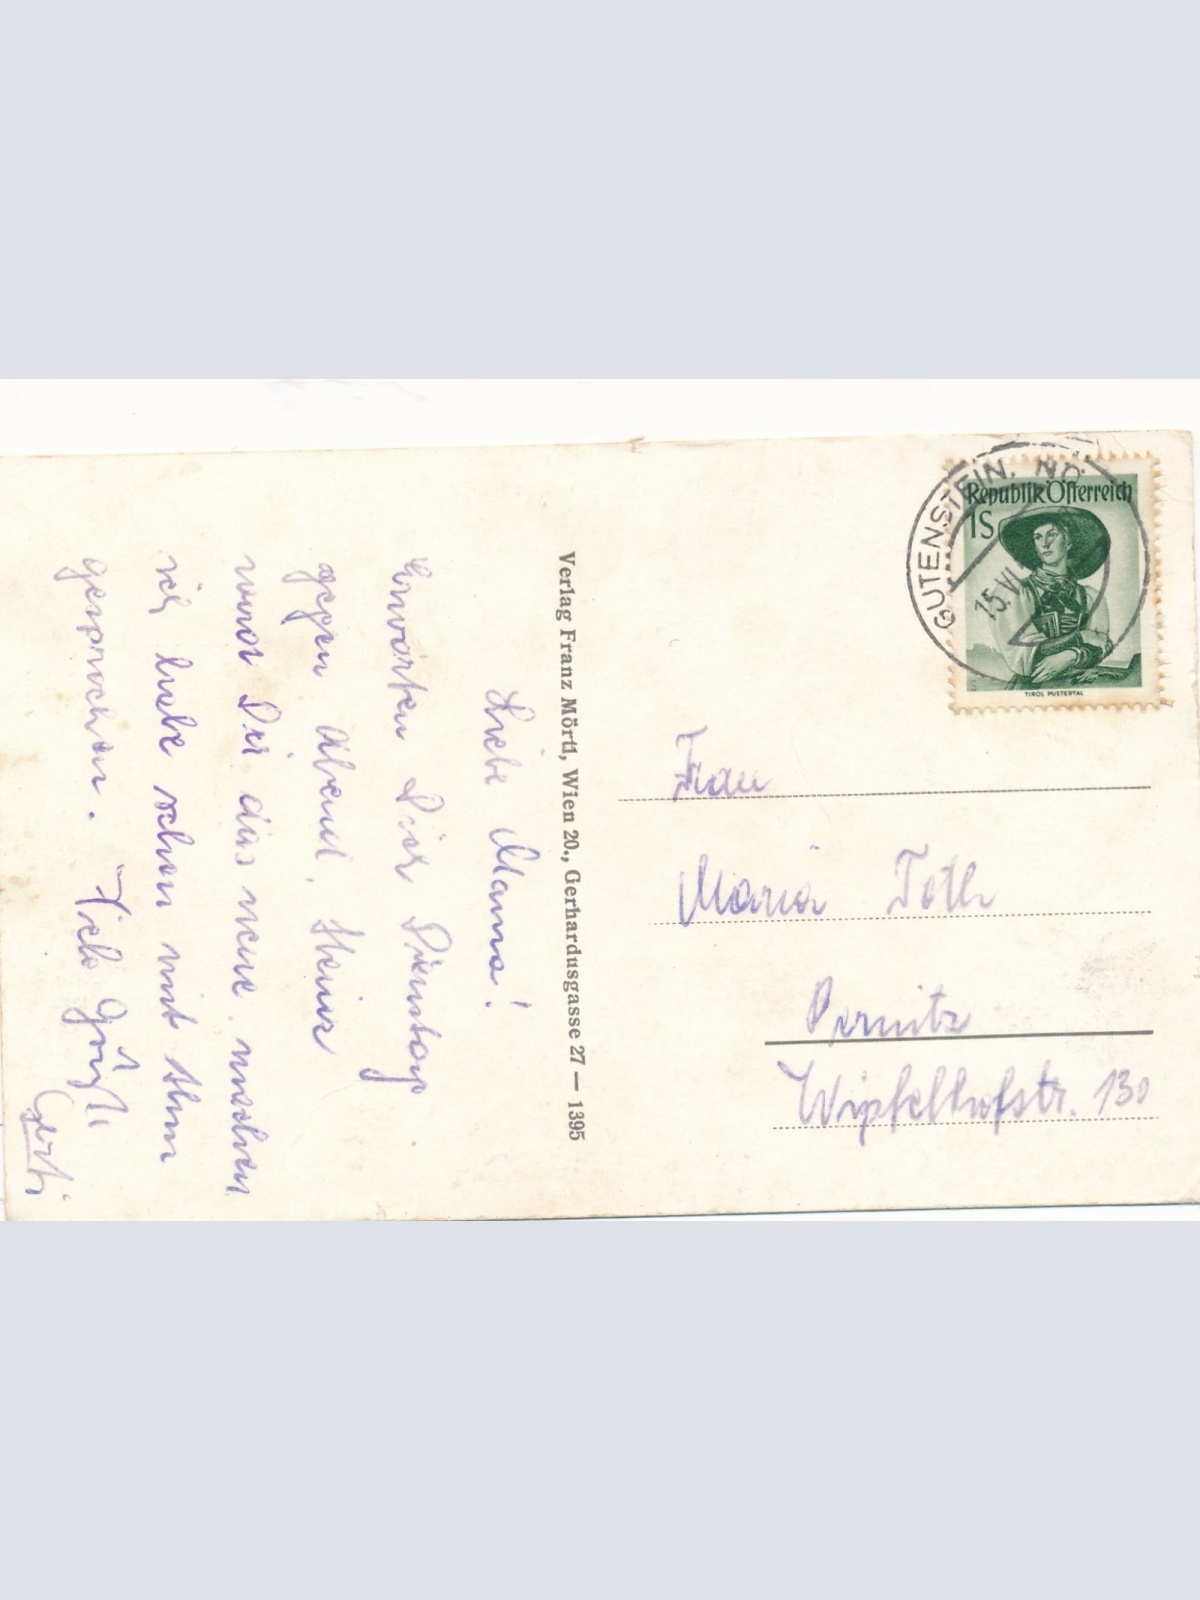 Liebe Mama!
Erwarten Dich Dienstag
gegen Abend. Heinz
wird Dir das neue machen
ich habe schon mit ihm
gesprochen. Viele Grüße
Gerti
Verlag Franz Mörtl, Wien 20., Gerhardusgasse 27 — 1395
GUTENSTEIN, NÖ.
15.VI
Republik Österreich
1S
TIROL PUSTERTAL
Frau
Maria Toth
Pernitz
Wipfelhofstr. 130